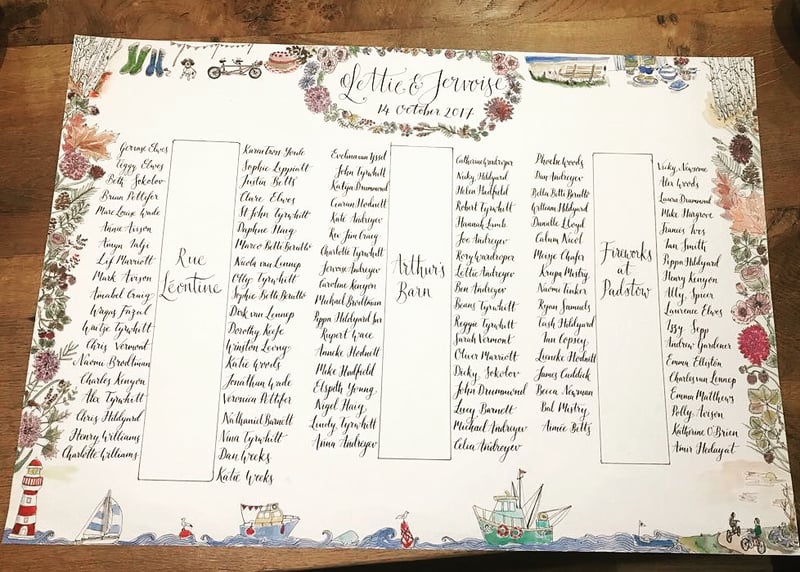 Lettie & Jervoise
14 October 2017
Gervase Elwes
Peggy Elwes
Beth Sokolov
Brian Peltifer
Marc Louis Wade
Annie Avison
Amyn Lalji
Leif Marriott
Mark Avison
Annabel Craig
Waqas Fazal
Waitje Tyrwhitt
Chris Vermont
Naomi Brodtman
Charles Kenyon
Alex Tyrwhitt
Chris Hildyard
Henry Williams
Charlotte Williams
Rue
Léontine
Sophie Leppiatt
Justin Betts
Clare Elwes
St John Tyrwhitt
Daphne Haig
Marco Betti Berutto
Nicola van Lennep
Olly Tyrwhitt
Sophie Betti Berutto
Dirk van Lennep
Dorothy Keefe
Winston Leong
Katie Woods
Jonathan Wade
Veronica Peltifer
Nathaniel Barnett
Nina Tyrwhitt
Dan Weeks
Katie Weeks
Evelina van Yssel
John Tyrwhitt
Katlyn Drummond
Ciaran Hodnett
Kate Andreyev
Rev Jim Craig
Charlotte Tyrwhitt
Jervoise Andreyev
Caroline Kenyon
Michael Brodtman
Pippa Hildyard Snr
Rupert Wace
Anneke Hodnett
Mike Hadfield
Elspeth Young
Nigel Haig
Lindy Tyrwhitt
Anna Andreyev
Arthur's
Barn
Catherine Wardroper
Nicky Hildyard
Helen Hadfield
Robert Tyrwhitt
Hannah Lamb
Joe Andreyev
Rory Wardroper
Lettie Andreyev
Ben Andreyev
Beans Tyrwhitt
Reggie Tyrwhitt
Sarah Vermont
Oliver Marriott
Dicky Sokolov
John Drummond
Lucy Barnett
Michael Andreyev
Celia Andreyev
Phoebe Woods
Dan Andreyev
Bella Betti Berutto
William Hildyard
Danielle Lloyd
Calum Nicol
Krupa Mistry
Naomi Tinker
Ryan Samuels
Tash Hildyard
Ian Copsey
Lineke Hodnett
James Caddick
Becca Newman
Bal Mistry
Aimée Betts
Fireworks
at
Padstow
Vicky Newsome
Alex Woods
Laura Drummond
Mike Hargrove
Francis Ives
Ian Smith
Pippa Hildyard
Henry Kenyon
Ally Spicer
Laurence Elwes
Issy Sepp
Andrew Gardener
Emma Elleston
Charles van Lennep
Emma Matthews
Polly Avison
Katherine O'Brien
Amir Hedayat